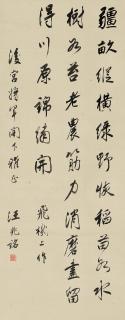 疆畝縱橫綠野恢稻苗如水
樹如苔老農筋力消磨盡留
得川原錦繡開 飛機上作
後宮將軍閣下雅正
汪兆銘